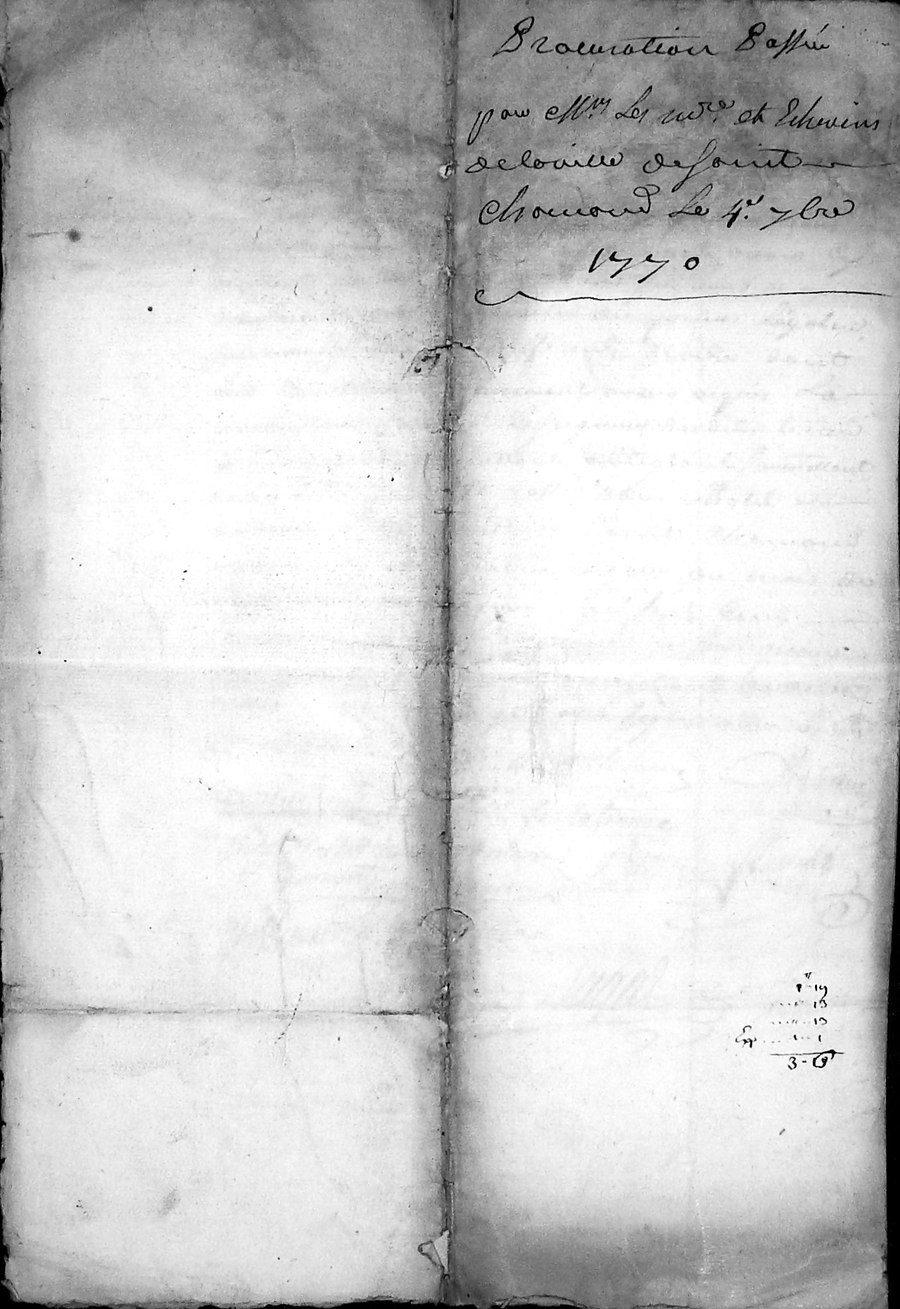 Procuration Passée
par Mrs. Les m.res et Echevins
de la ville de Saint
Chamond Le 4e. 7bre
1770
1" 19
13
13
1 - 1
3 - 6